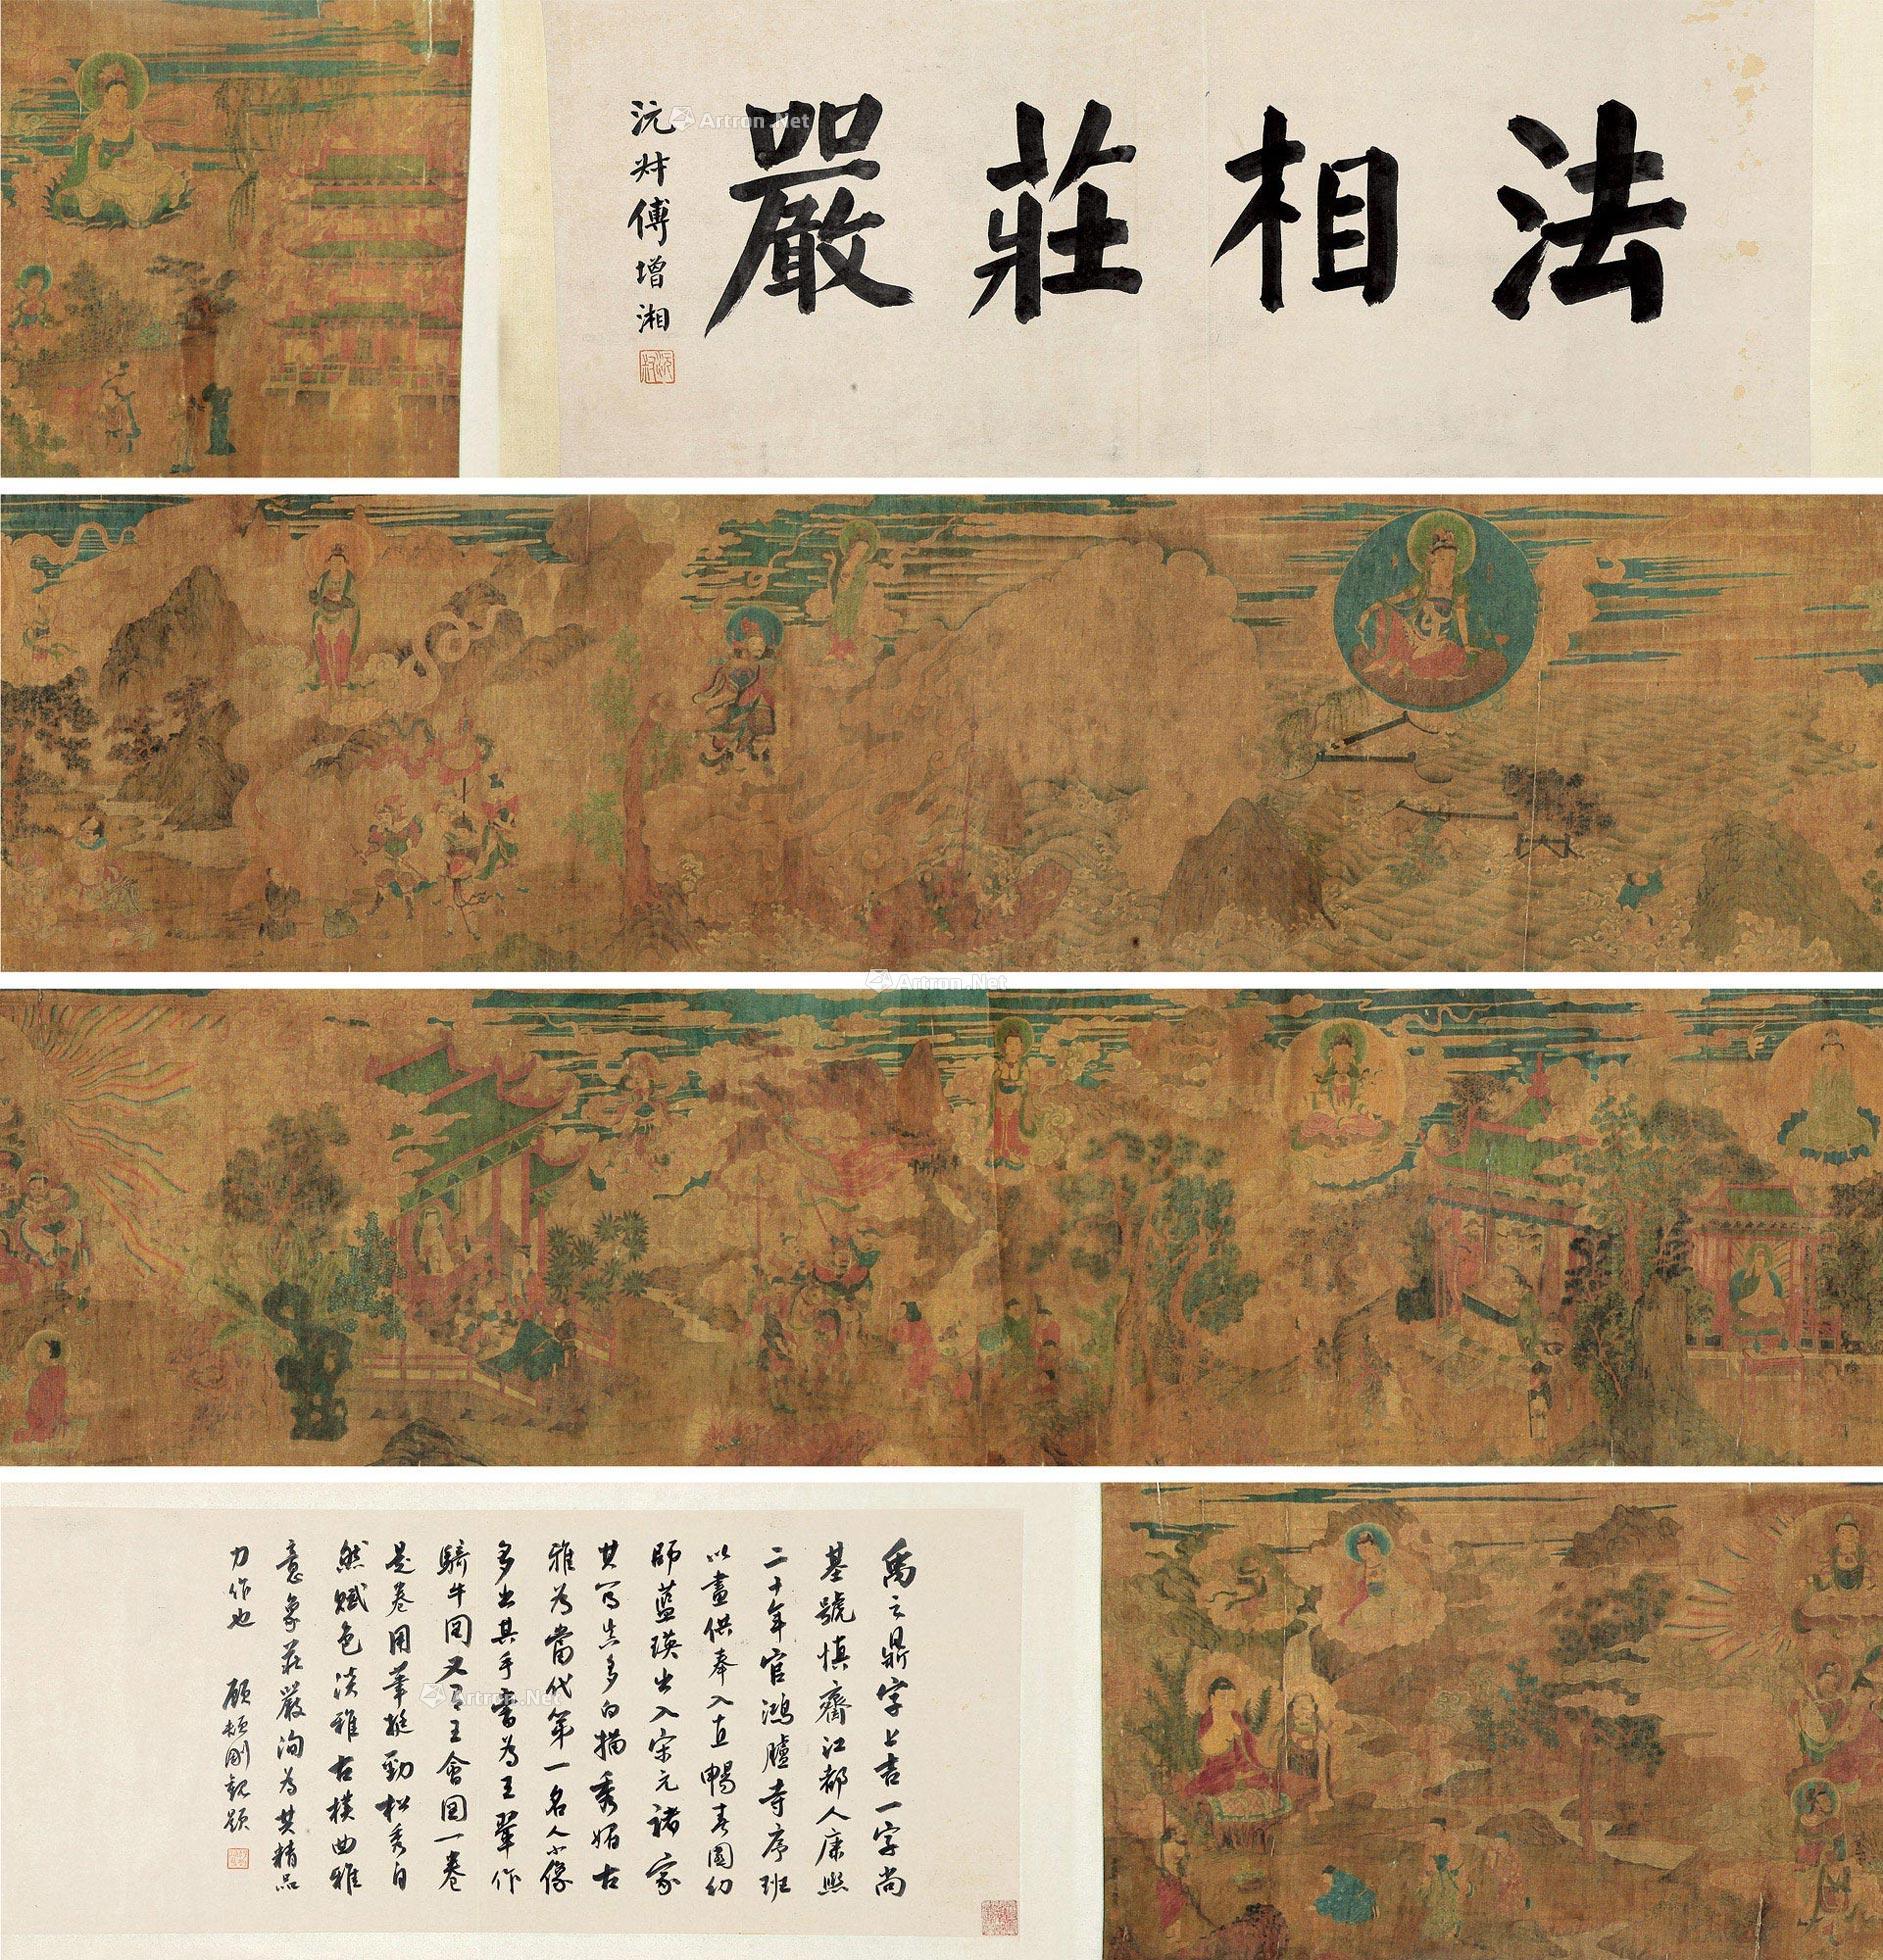 法相莊嚴
沅叔傅增湘
禹之鼎字上吉一字尚
基號慎齋江都人康熙
二十年官鴻臚寺序班
以畫供奉入直暢春園初
師藍瑛出入宋元諸家
其寫真多白描秀媚古
雅為當代第一名人小像
多出其手嘗為王翬作
騎牛圖又有王會圖一卷
是卷用筆挺勁松秀自
然賦色淡雅古樸曲雅
意象莊嚴洵為其精品
力作也 顧頡剛觀題
Artron.Net
Artron.Net
Artron.Net